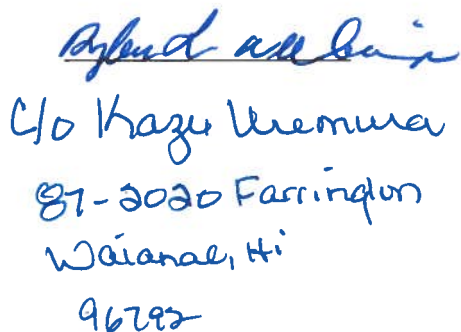 c/o Kazu Uremura
87-2020 Farrington
Waianae, Hi
96792